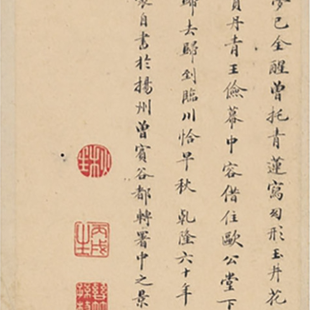 已全醒曾托青蓮寫幻形玉井花
丹青王儉幕中容借住歐公堂下
歸去歸到臨川恰早秋乾隆六十年
自書於揚州曾賓谷都轉署中之景